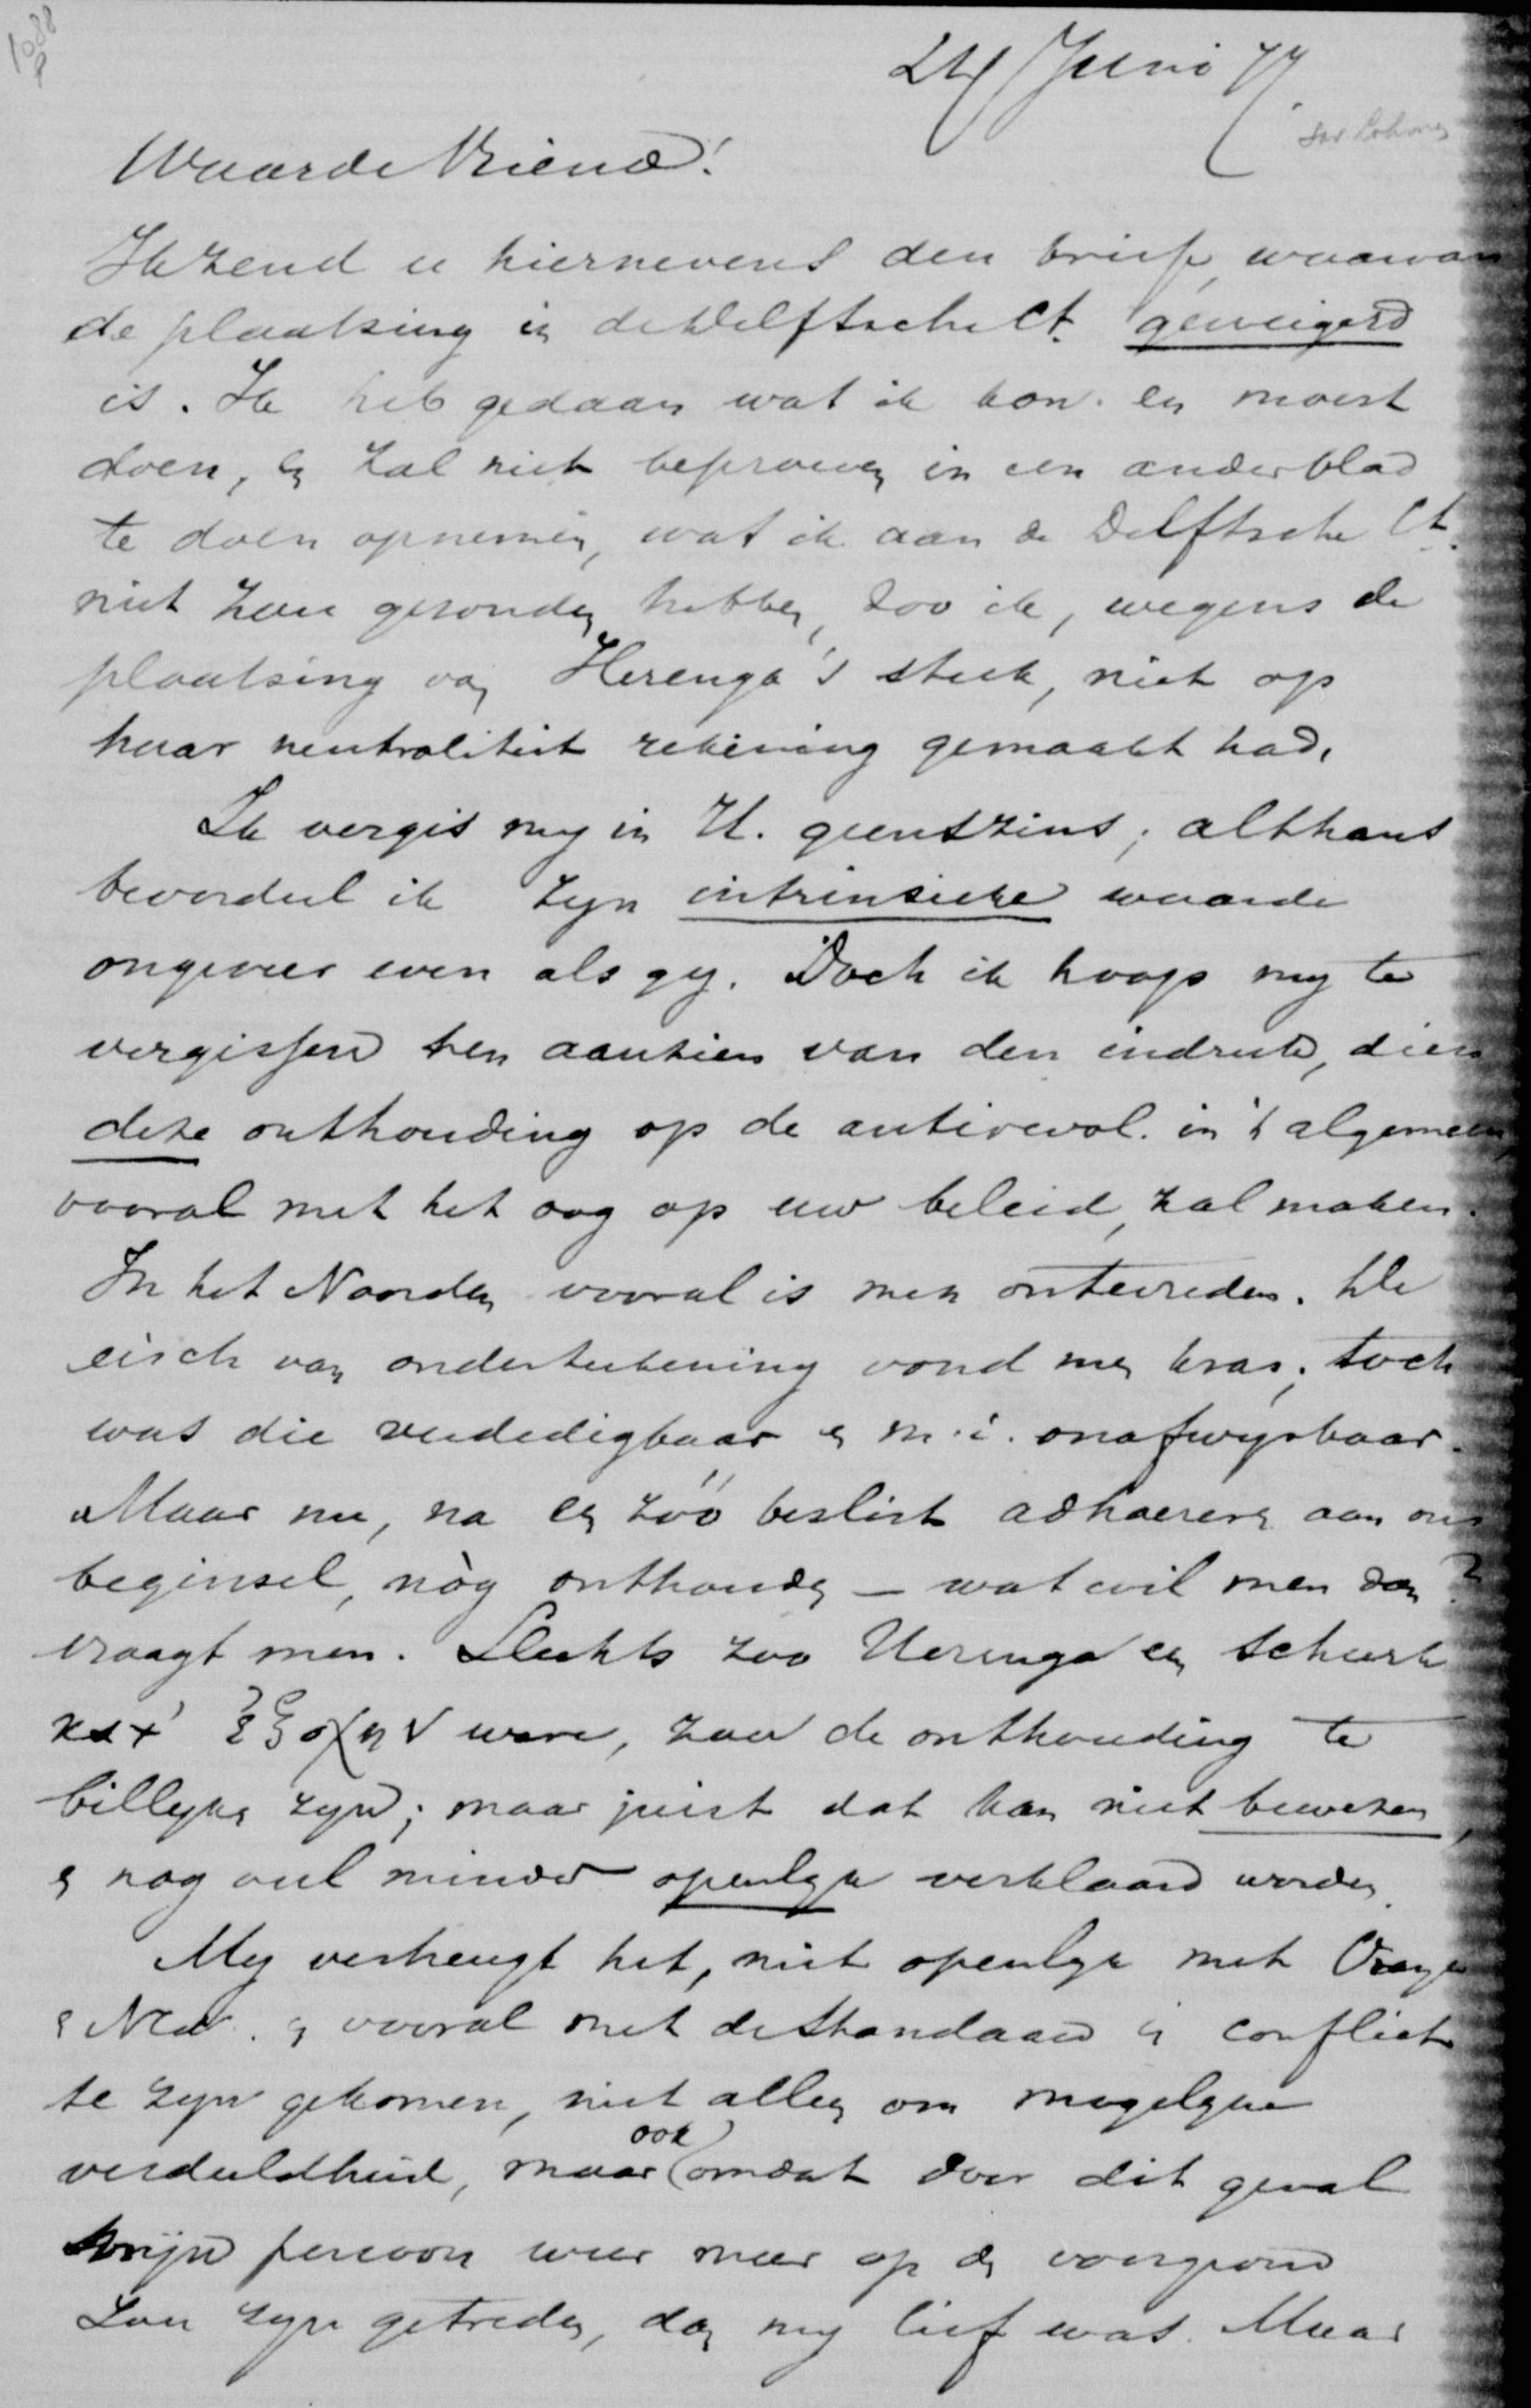 1088
P
24 Juni 77
Sav. Lohman
Waarde Vriend!
Ik zend u hiernevens den brief, waarvan
de plaatsing in de Delftsche Ct. geweigerd
is. Ik heb gedaan wat ik kon en moest
doen, en zal niet beproeven in een ander blad
te doen opnemen, wat ik aan de Delftsche Ct.
niet zou gezonden hebben, zoo ik, wegens de
plaatsing van Heringa's stuk, niet op
haar neutraliteit rekening gemaakt had.
Ik vergis my in H. geenszins; althans
beoordeel ik zyn intrinsieke waarde
ongeveer even als gy. Doch ik hoop my te
vergissen ten aanzien van den indruk, dien
deze onthouding op de antirevol. in 't algemeen,
vooral met het oog op uw beleid, zal maken.
In het Noorden vooral is men ontevreden. De
eisch van onderteekening vond men kras; toch
was die verdedigbaar en m.i. onafwysbaar.
Maar nu, na een zóó beslist adhaereren aan ons
beginsel, nòg onthouden – wat wil men dan?
vraagt men. Slechts zoo Heringa een schurk
κατ' ἐξοχην ware, zou de onthouding te
billyken zyn; maar juist dat kan niet bewezen,
en nog veel minder openlyk verklaard worden.
My verheugt het, niet openlyk met Oranje
en Ned. en vooral met de Standaard in conflict
te zyn gekomen, niet alleen om mogelyke
verdeeldheid, maar ook omdat door dit geval
mijn persoon weer meer op den voorgrond
zou zyn getreden, dan my lief was. Maar